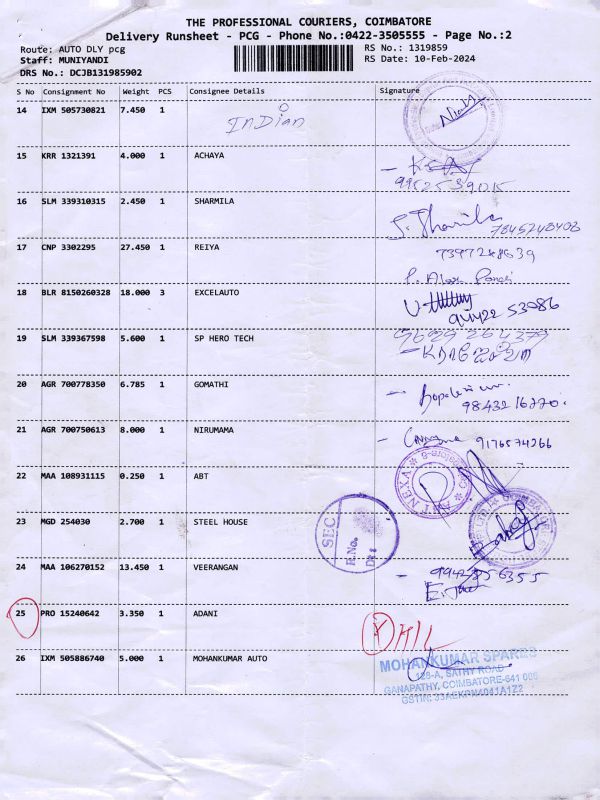 THE PROFESSIONAL COURIERS, COIMBATORE
Delivery Runsheet - PCG - Phone No.:0422-3505555 - Page No.:2
Route: AUTO DLY pcg
RS No.: 1319859
Staff: MUNIYANDI
RS Date: 10-Feb-2024
DRS No.: DCJB131985902
S No Consignment No Weight PCS Consignee Details Signature
14 IXM 505730821 7.450 1 InDian
15 KRR 1321391 4.000 1 ACHAYA
9952539015
16 SLM 339310315 2.450 1 SHARMILA
S. Sharmila 7845248408
17 CNP 3302295 27.450 1 REIYA 7397248639
18 BLR 8150260328 18.000 3 EXCELAUTO
53086
19 SLM 339367598 5.600 1 SP HERO TECH 9629264379
20 AGR 700778350 6.785 1 GOMATHI
9843216770.
21 AGR 700750613 8.000 1 NIRUMAMA 9176574266
22 MAA 108931115 0.250 1 ABT
ABT NEXA
23 MGD 254030 2.700 1 STEEL HOUSE
SEC
R.No.
COIMBATORE
24 MAA 106270152 13.450 1 VEERANGAN
25 PRO 15240642 3.350 1 ADANI
26 IXM 505886740 5.000 1 MOHANKUMAR AUTO
MOHANKUMAR SPARES
128-A, SATHY ROAD
GANAPATHY, COIMBATORE-641 006
GSTIN: 33AEKPN4041A1Z2